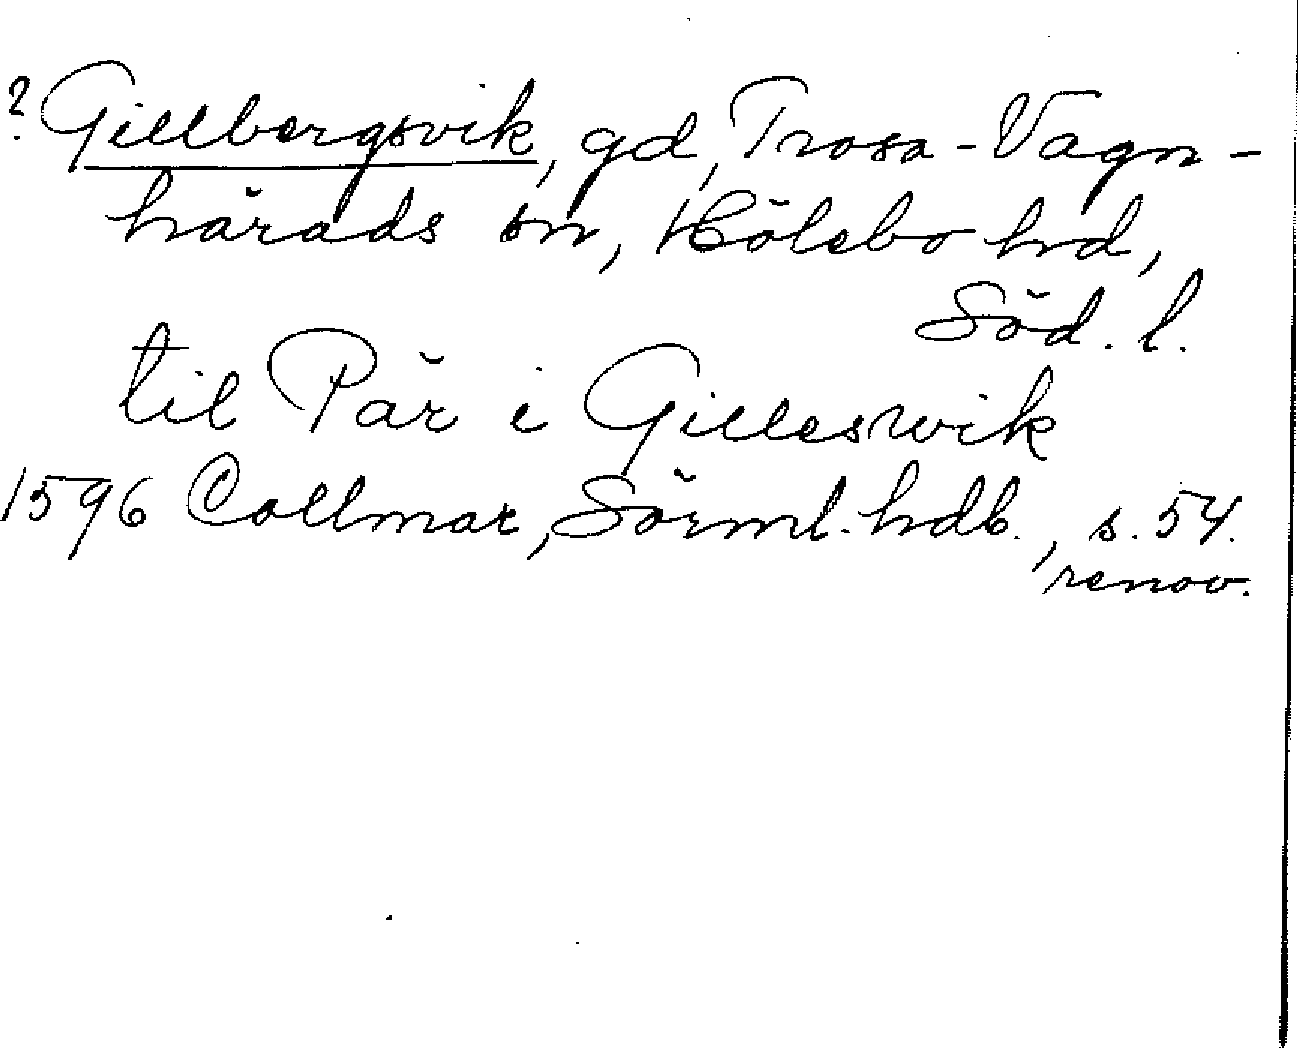 ? Gillbergsvik, gd, Trosa-Vagn-
härads sn, Hölebo hd,
Söd. l.
til Pär i Gilleswik
1596 Collmar, Sörml. hdl., s. 54.
renov.